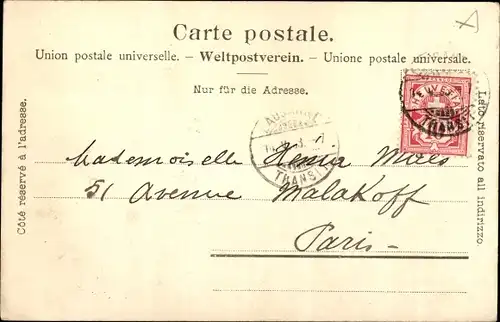 Carte postale.
Union postale universelle. - Weltpostverein. - Unione postale universale.
Nur für die Adresse.
Côté réservé à l'adresse.
Lato riservato all indirizzo.
HELVETIA
TRANSIT
TRANSIT
Mademoiselle
51 Avenue Malakoff
Paris -